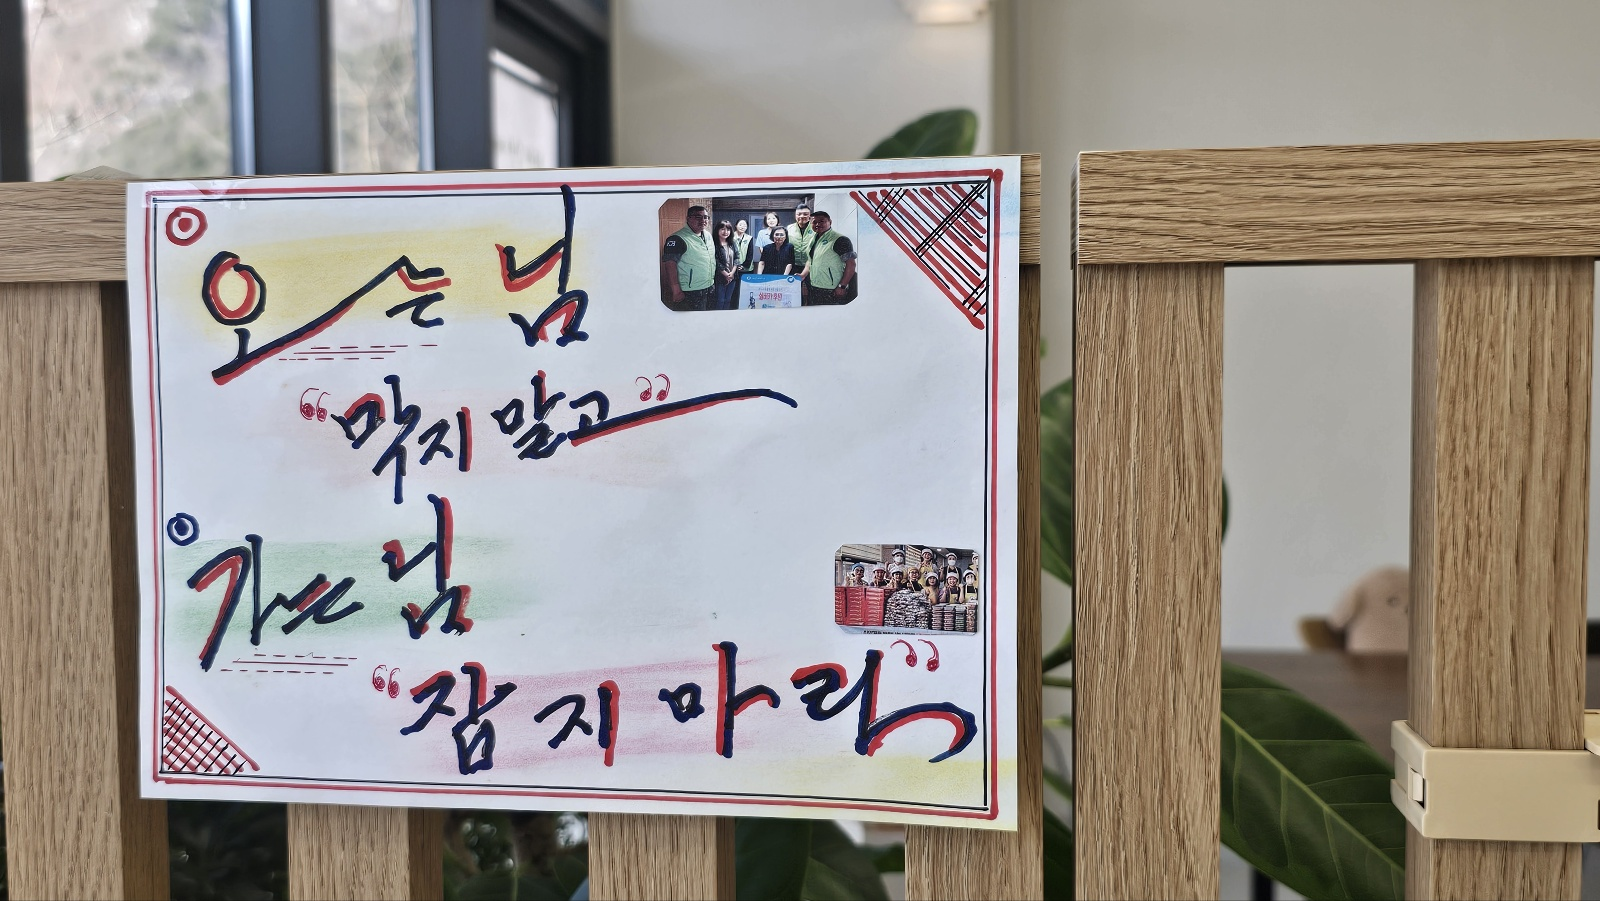 오는 님
“막지 말고”
가는 님
“잡지 마라”